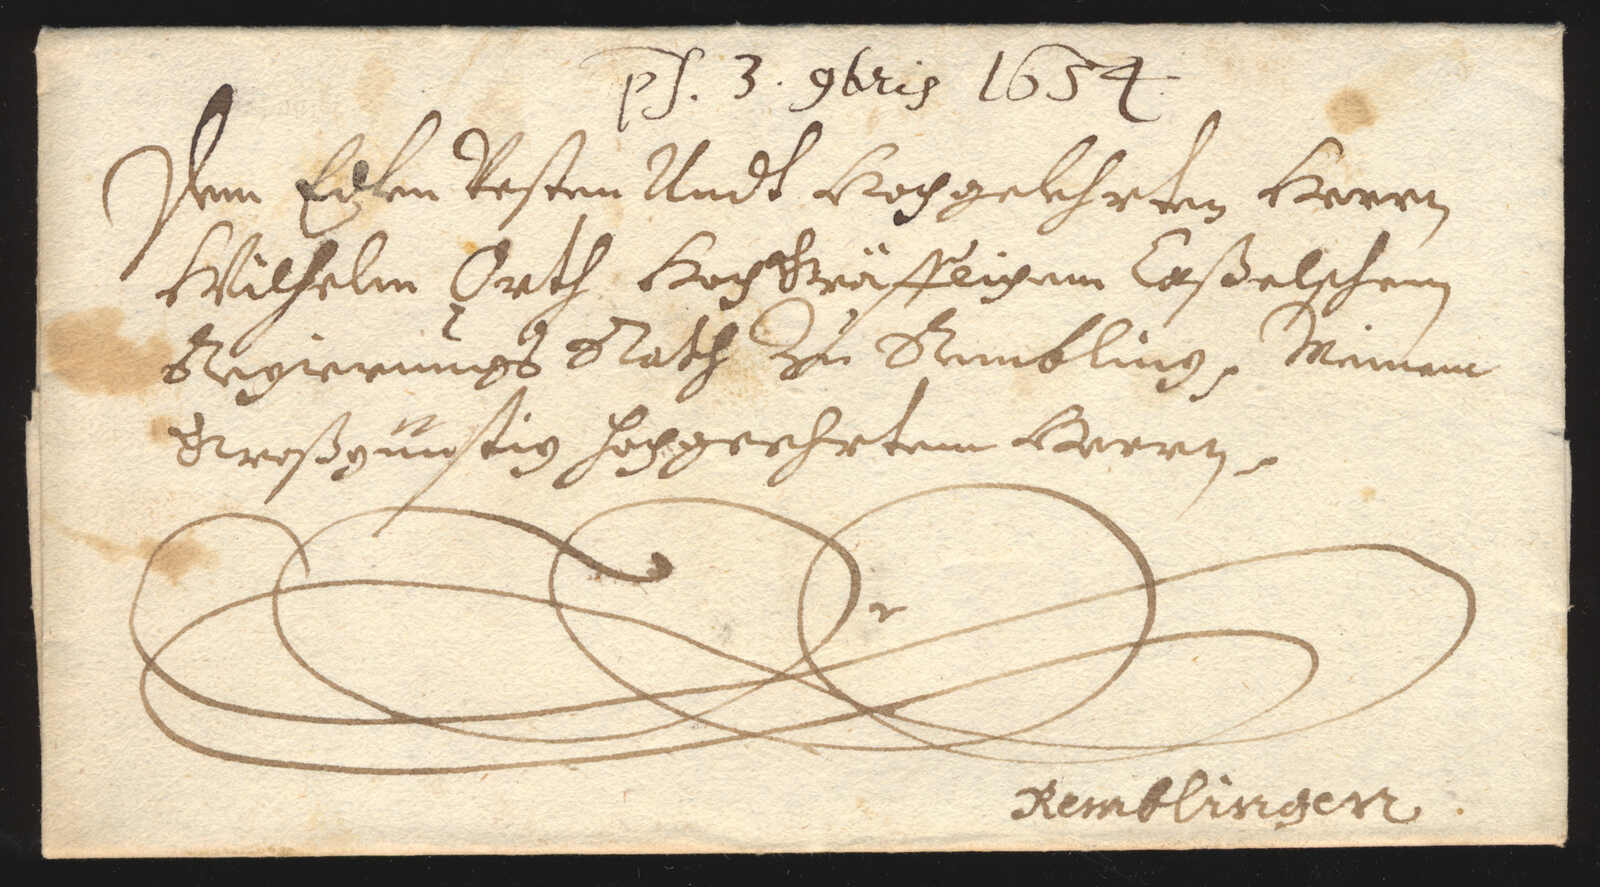 ps. 3. 9bris 1654
Dem Edlen Vesten Undt Hochgelehrten Herrn
Wilhelm Orth Hochgräfflichem Caßelschem
Regierungs Rath Zu Rembling. Meinem
Großgünstig hochgeehrtem Herrn.
Remblingen